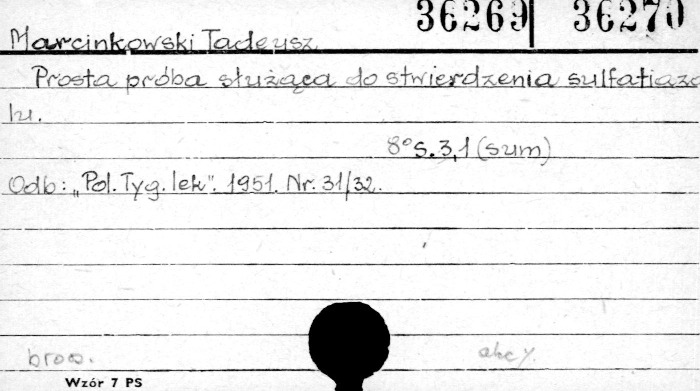 36269 36270
Marcinkowski Tadeusz
Prosta próba służąca do stwierdzenia sulfatiazo
lu.
8° s. 3,1 (sum)
Odb: „Pol. Tyg. lek". 1951. Nr. 31/32.
bros.
Wzór 7 PS